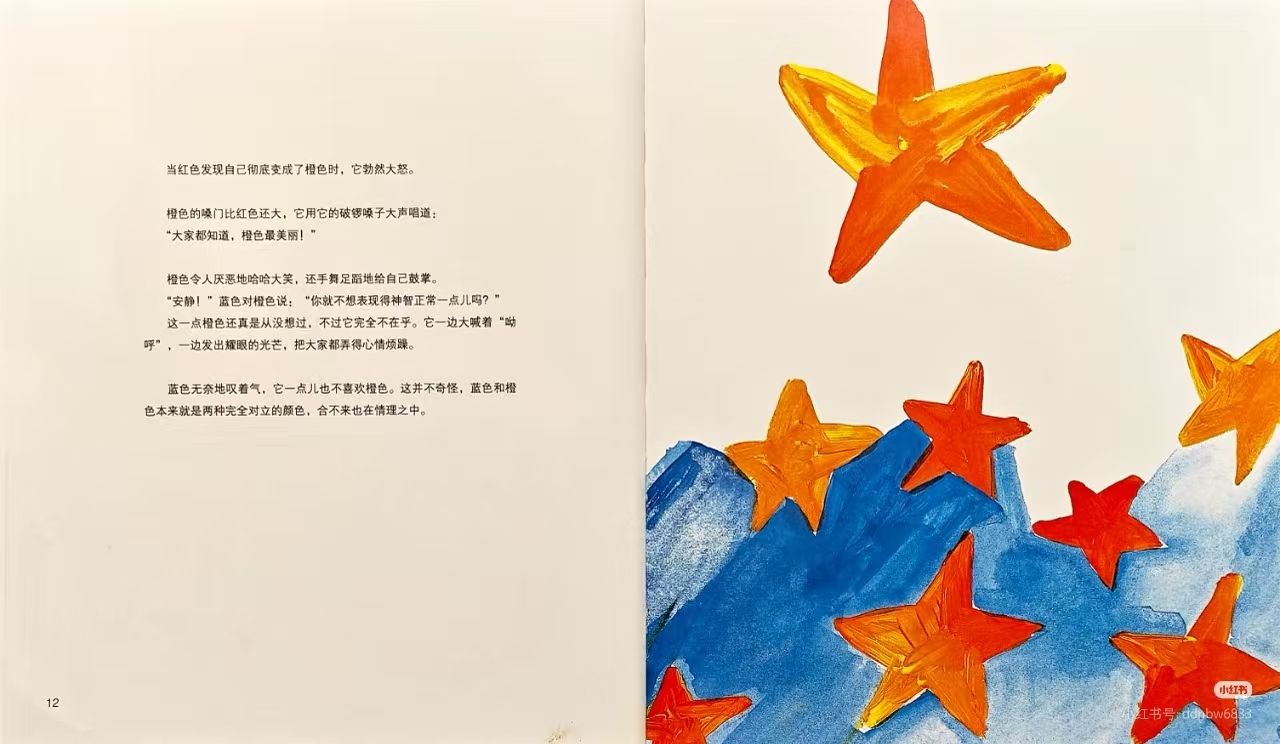 当红色发现自己彻底变成了橙色时，它勃然大怒。
橙色的嗓门比红色还大，它用它的破锣嗓子大声唱道：
“大家都知道，橙色最美丽！”
橙色令人厌恶地哈哈大笑，还手舞足蹈地给自己鼓掌。
“安静！”蓝色对橙色说：“你就不想表现得神智正常一点儿吗？”
这一点橙色还真是从没想过，不过它完全不在乎。它一边大喊着“呦
呼”，一边发出耀眼的光芒，把大家都弄得心情烦躁。
蓝色无奈地叹着气，它一点儿也不喜欢橙色。这并不奇怪，蓝色和橙
色本来就是两种完全对立的颜色，合不来也在情理之中。
12
小红书
小红书号: donbw6833